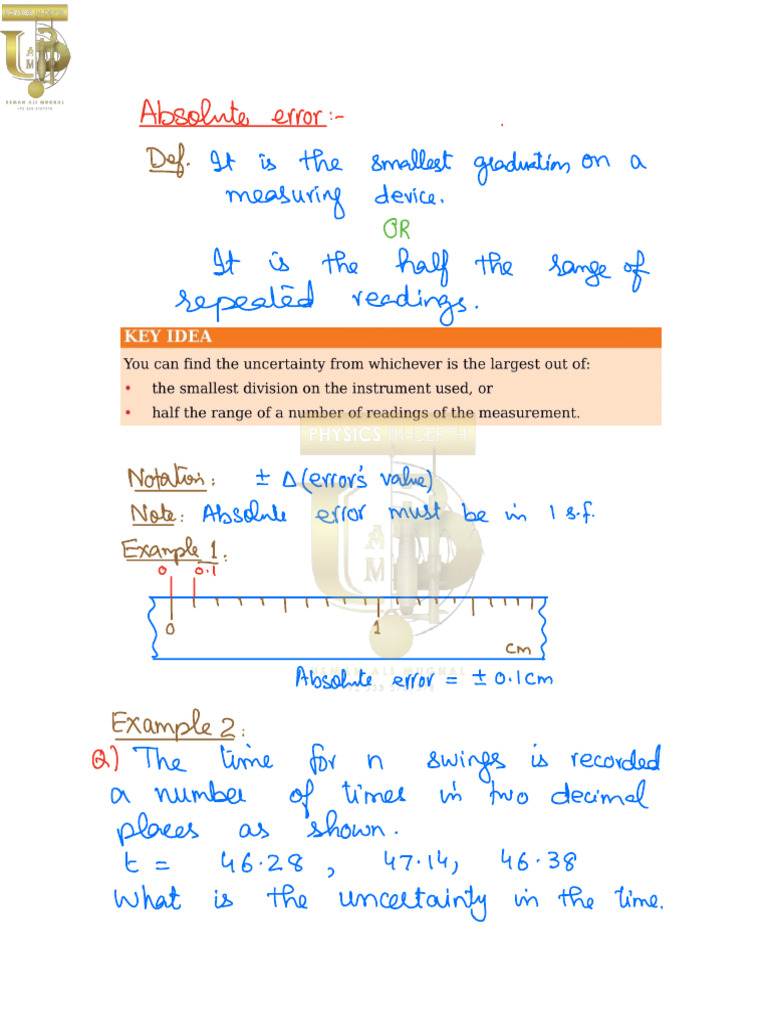 PHYSICS IN-DEPTH
U
A
M
USMAN ALI MUGHAL
Absolute error:-
Def. It is the smallest graduation on a
measuring device.
OR
It is the half the range of
repeated readings.
KEY IDEA
You can find the uncertainty from whichever is the largest out of:
• the smallest division on the instrument used, or
• half the range of a number of readings of the measurement.
PHYSICS IN-DEPTH
Notation: ± Δ (error's value)
Note: Absolute error must be in 1 s.f.
A
M
Example 1:
0 0.1
0 1
cm
USMAN ALI MUGHAL
Absolute error = ± 0.1cm
Example 2:
Q) The time for n swings is recorded
a number of times in two decimal
places as shown.
t = 46.28, 47.14, 46.38
What is the uncertainty in the time.